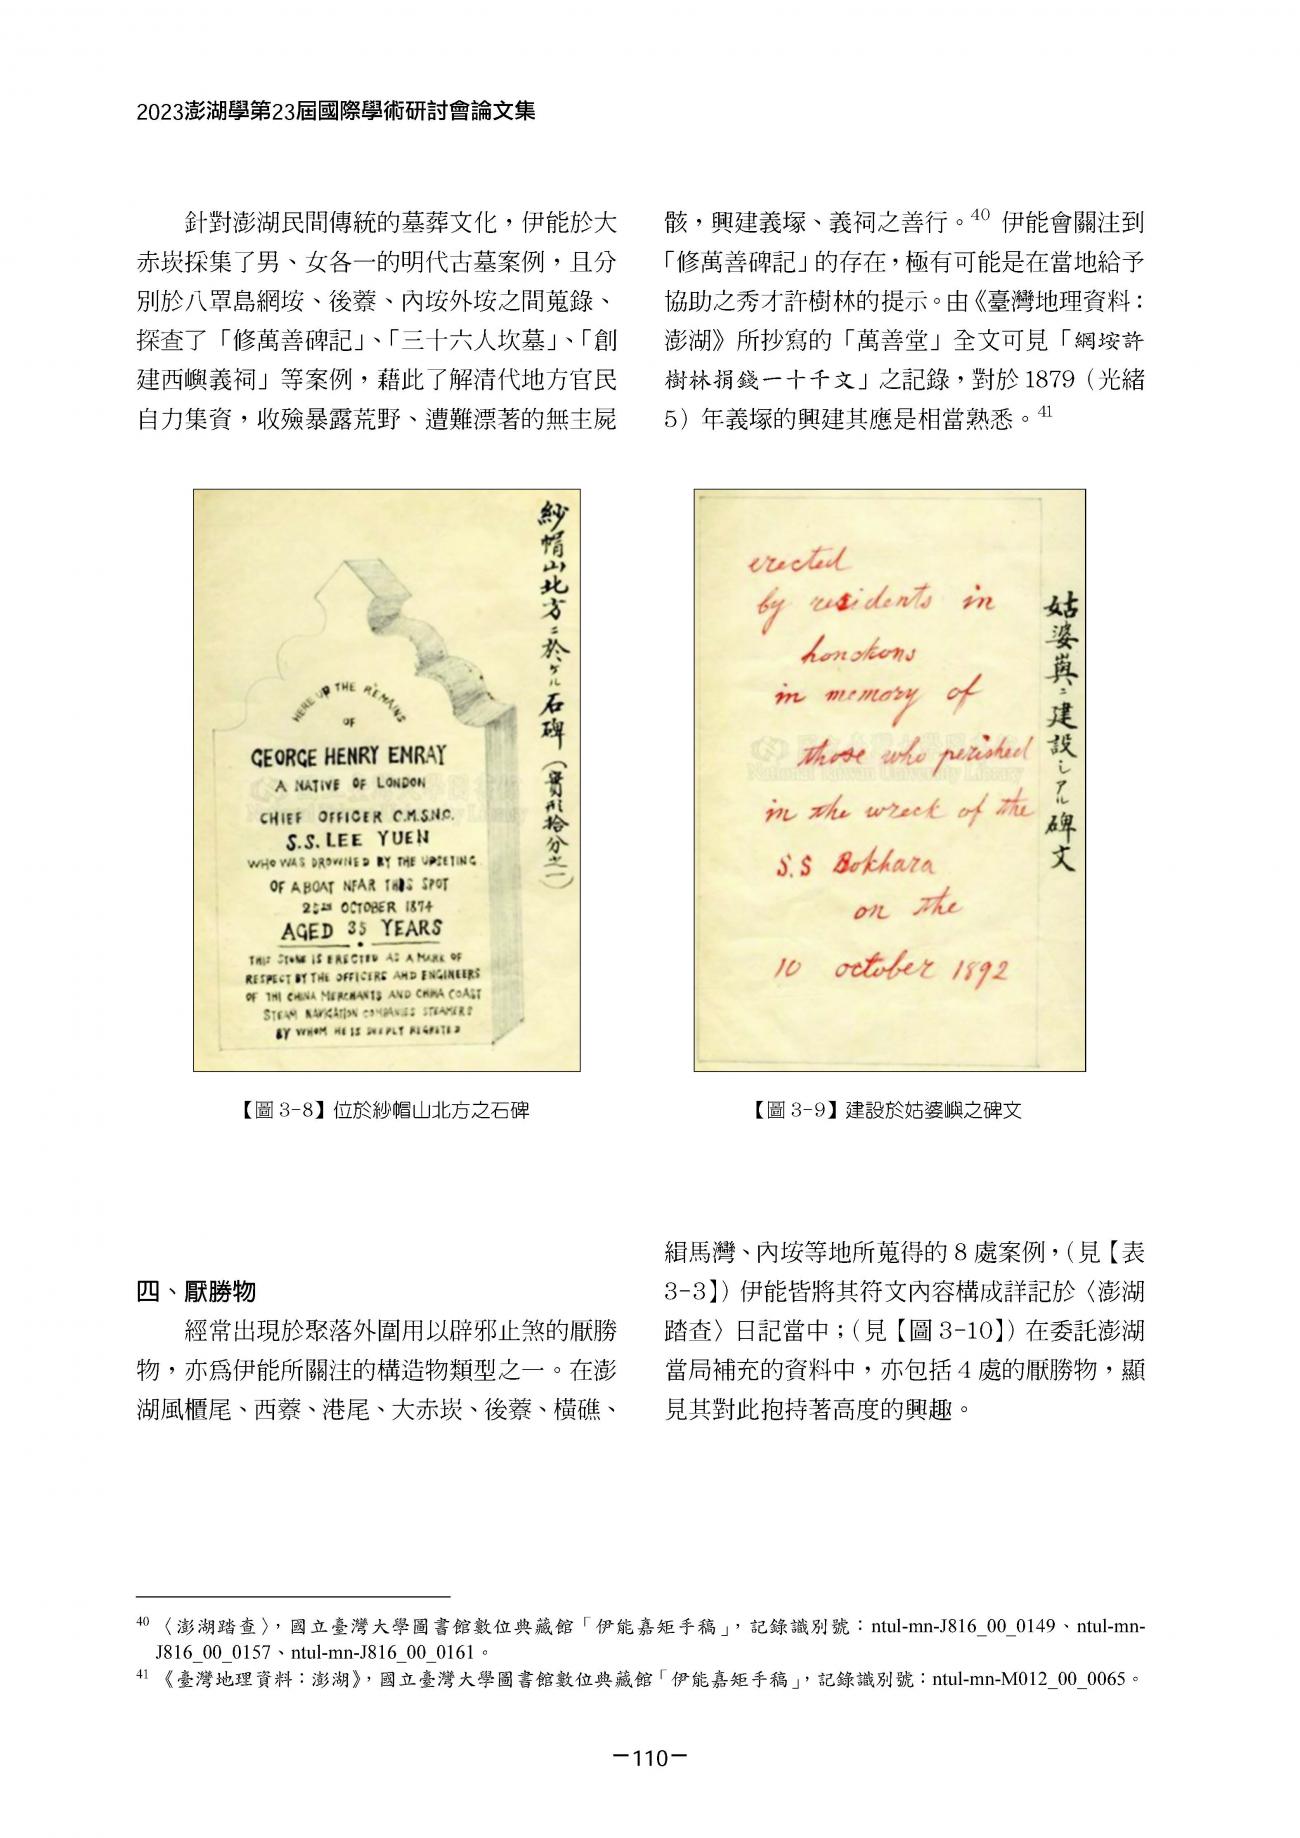 2023澎湖學第23屆國際學術研討會論文集
針對澎湖民間傳統的墓葬文化，伊能於大
赤崁採集了男、女各一的明代古墓案例，且分
別於八罩島網垵、後藔、內垵外垵之間蒐錄、
探查了「修萬善碑記」、「三十六人坎墓」、「創
建西嶼義祠」等案例，藉此了解清代地方官民
自力集資，收殮暴露荒野、遭難漂著的無主屍
骸，興建義塚、義祠之善行。40 伊能會關注到
「修萬善碑記」的存在，極有可能是在當地給予
協助之秀才許樹林的提示。由《臺灣地理資料：
澎湖》所抄寫的「萬善堂」全文可見「網垵許
樹林捐錢一十千文」之記錄，對於1879（光緒
5）年義塚的興建其應是相當熟悉。41
紗帽山北方ニ於ケル石碑（實形拾分之一）
HERE UP THE REMAINS
OF
GEORGE HENRY EMRAY
A NATIVE OF LONDON
CHIEF OFFICER C.M.S.N.C.
S.S. LEE YUEN
WHO WAS DROWNED BY THE UPSETING
OF A BOAT NEAR THIS SPOT
25TH OCTOBER 1874
AGED 35 YEARS
THIS STONE IS ERECTED AS A MARK OF
RESPECT BY THE OFFICERS AND ENGINEERS
OF THE CHINA MERCHANTS AND CHINA COAST
STEAM NAVIGATION COMPANIES STEAMERS
BY WHOM HE IS DEEPLY REGRETED
【圖 3-8】位於紗帽山北方之石碑
姑婆嶼ニ建設シアル碑文
erected
by residents in
honokons
in memory of
those who perished
in the wreck of the
S.S Bokhara
on the
10 october 1892
National Taiwan University Library
【圖 3-9】建設於姑婆嶼之碑文
四、厭勝物
經常出現於聚落外圍用以辟邪止煞的厭勝
物，亦為伊能所關注的構造物類型之一。在澎
湖風櫃尾、西藔、港尾、大赤崁、後藔、橫礁、
緝馬灣、內垵等地所蒐得的 8 處案例，（見【表
3-3】）伊能皆將其符文內容構成詳記於〈澎湖
踏查〉日記當中；（見【圖 3-10】）在委託澎湖
當局補充的資料中，亦包括 4 處的厭勝物，顯
見其對此抱持著高度的興趣。
40 〈澎湖踏查〉，國立臺灣大學圖書館數位典藏館「伊能嘉矩手稿」，記錄識別號：ntul-mn-J816_00_0149、ntul-mn-
J816_00_0157、ntul-mn-J816_00_0161。
41 《臺灣地理資料：澎湖》，國立臺灣大學圖書館數位典藏館「伊能嘉矩手稿」，記錄識別號：ntul-mn-M012_00_0065。
－110－